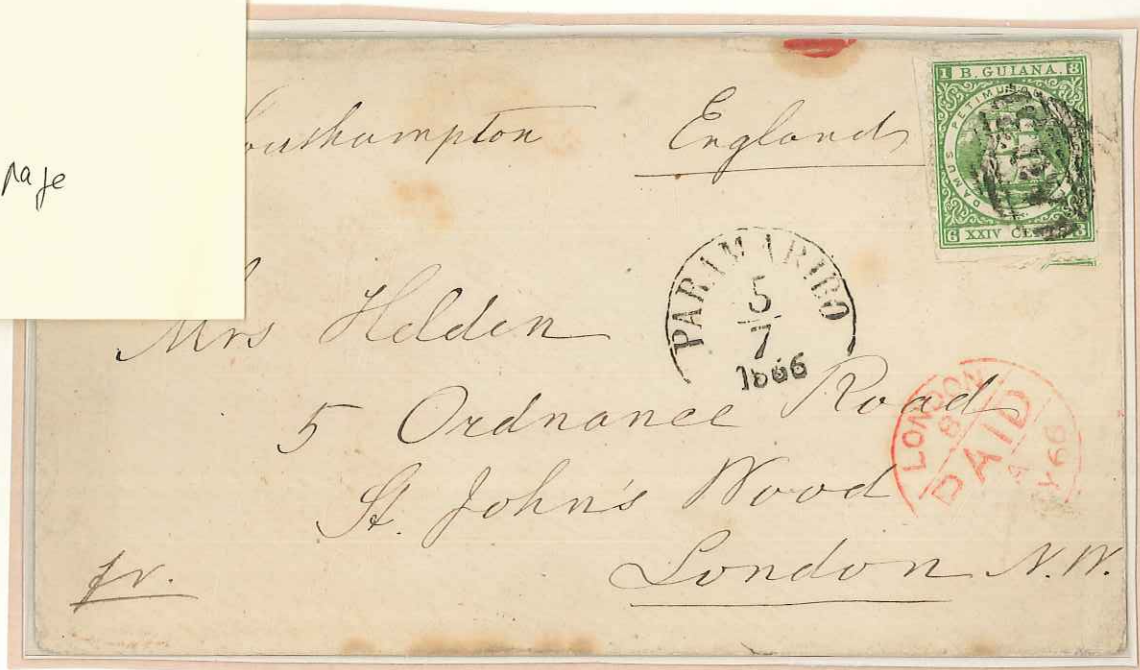 page
Southampton England
1 B. GUIANA. 8
DAMUS PETIMUS
6 XXIV CE 3
PARAMARIBO
5
7
1866
Mrs Holden
5 Ordnance Road
St. John's Wood
London N.W.
fr.
LONDON
8
PAID
66